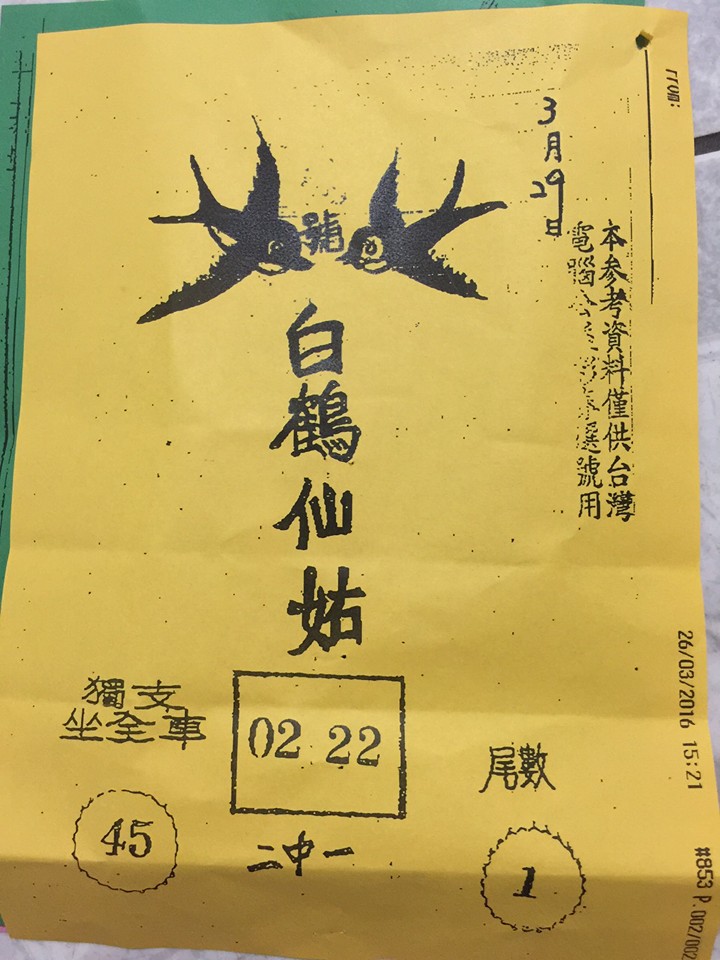 3月29日
本參考資料僅供台灣
電腦選號用
號
白鶴仙姑
獨支
坐全車
45
02 22
二中一
尾數
1
26/03/2016 15:21
#853 P.002/002